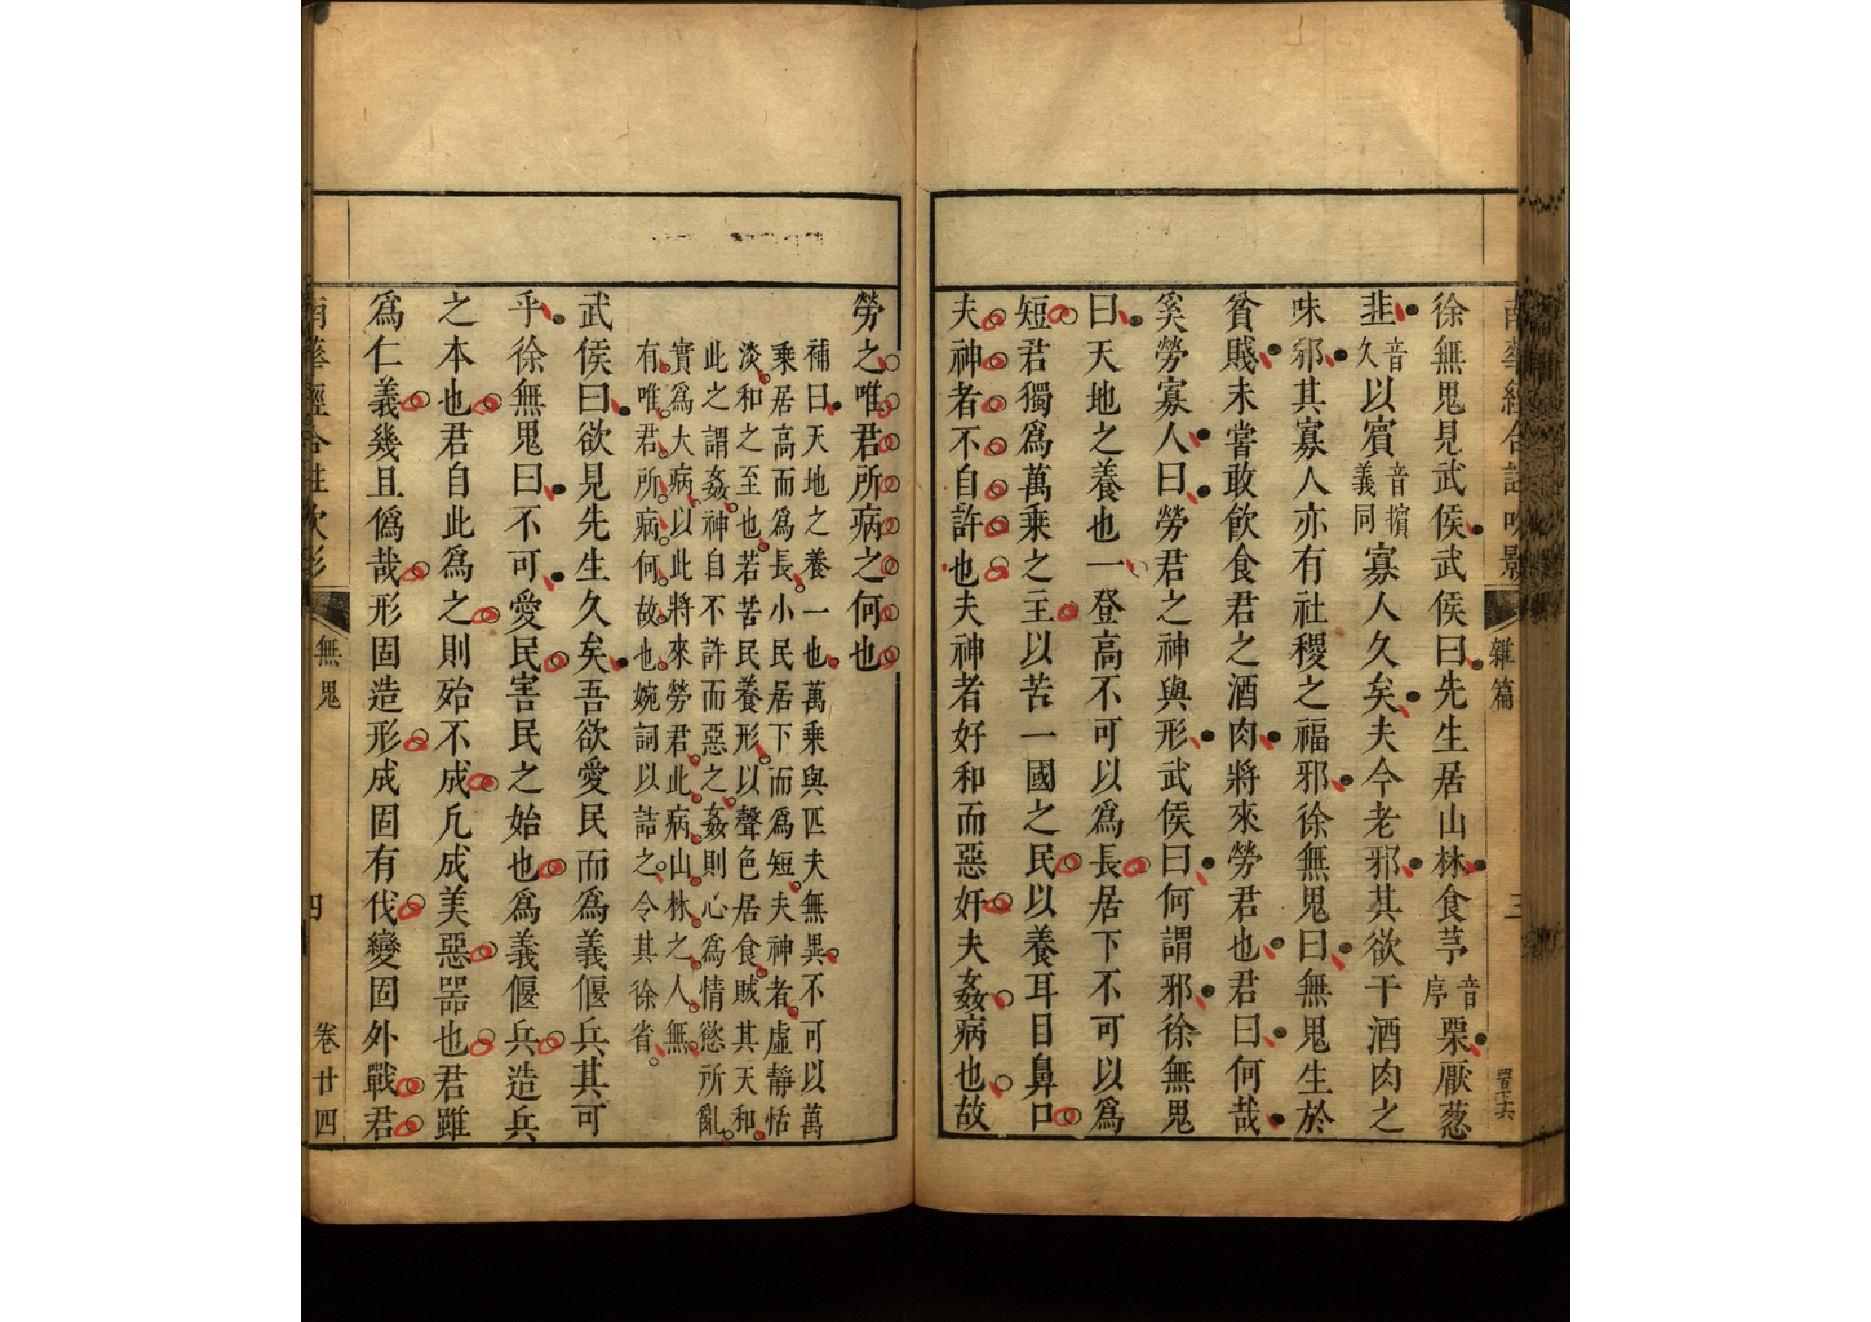 徐無鬼見武侯武侯曰先生居山林食芧音序栗厭葱
韭音久以賓音擯義同寡人久矣夫今老邪其欲干酒肉之
味邪其寡人亦有社稷之福邪徐無鬼曰無鬼生於
貧賤未嘗敢飲食君之酒肉將來勞君也君曰何哉
奚勞寡人曰勞君之神與形武侯曰何謂邪徐無鬼
曰天地之養也一登高不可以為長居下不可以為
短君獨為萬乘之主以苦一國之民以養耳目鼻口
夫神者不自許也夫神者好和而惡奸夫姦病也故
雜篇
三
勞之唯君所病之何也
補曰天地之養一也萬乘與匹夫無異不可以萬
乘居高而為長小民居下而為短夫神者虛靜恬
淡和之至也若苦民養形以聲色居食賊其天和
此之謂姦神自不許而惡之姦則心為情慾所亂
實為大病以此將來勞君此病山林之人無
有唯君所病何故也婉詞以詰之令其徐省
武侯曰欲見先生久矣吾欲愛民而為義偃兵其可
乎徐無鬼曰不可愛民害民之始也為義偃兵造兵
之本也君自此為之則殆不成凡成美惡器也君雖
為仁義幾且偽哉形固造形成固有伐變固外戰君
無鬼
四
卷廿四